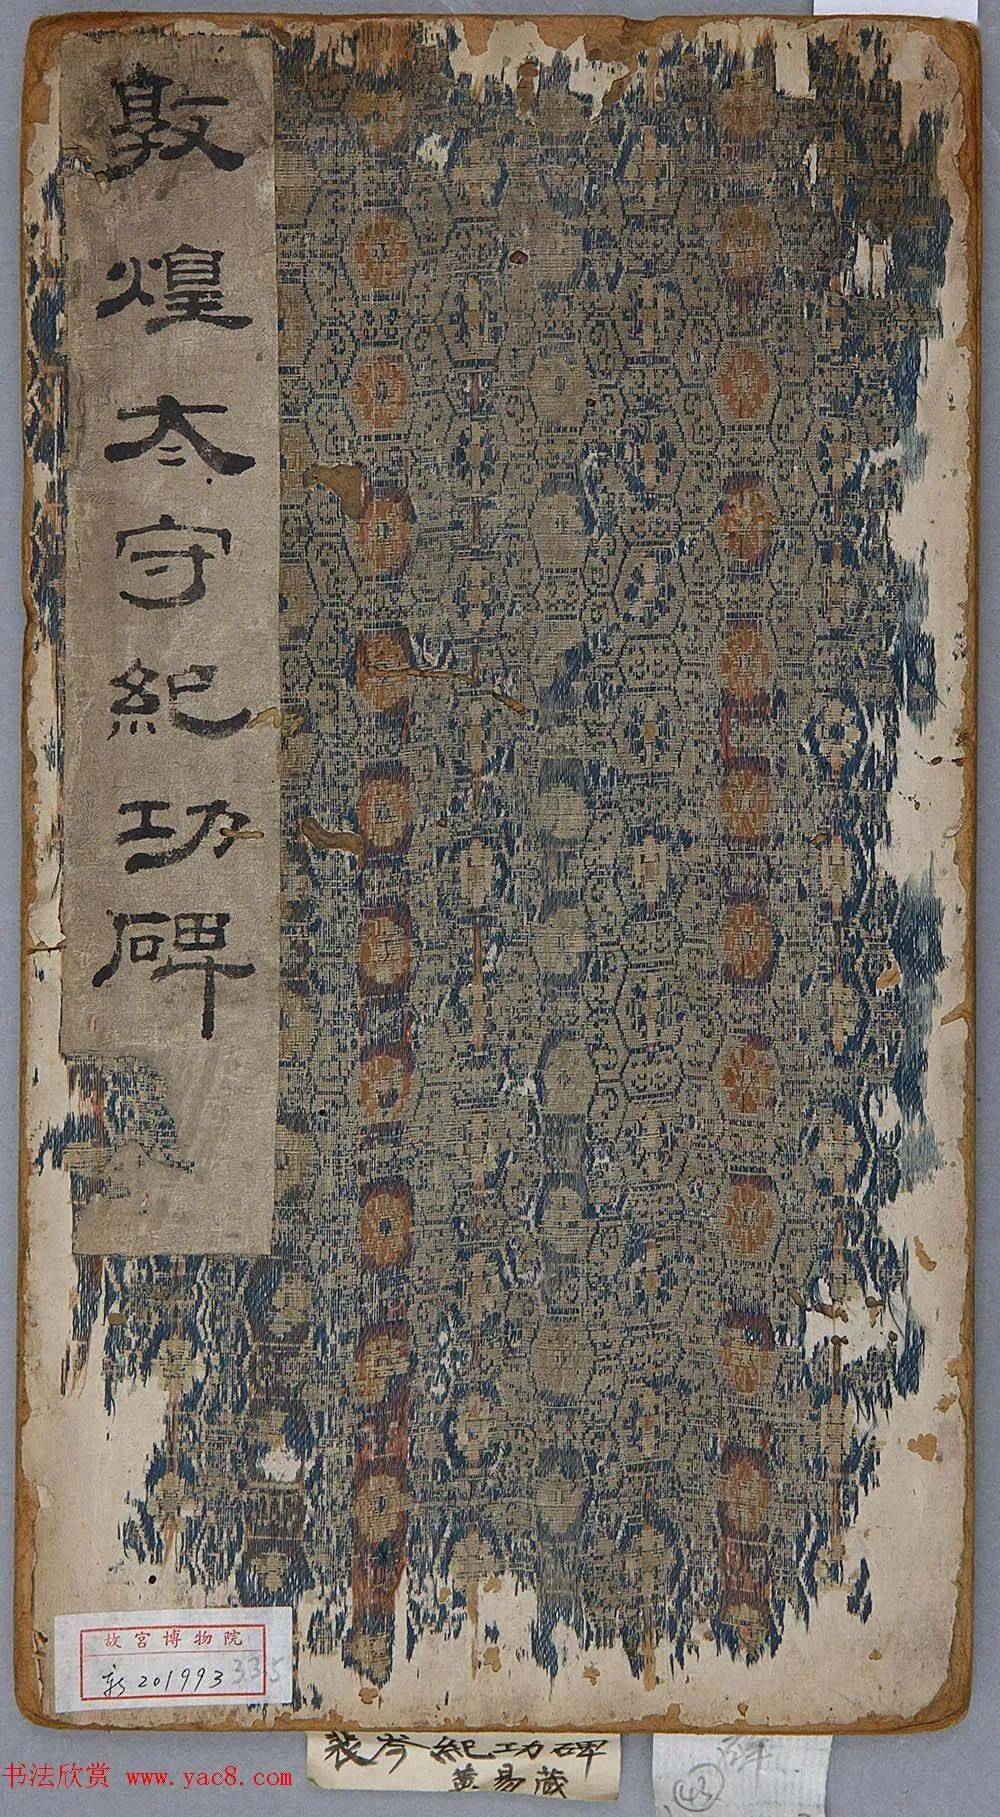 敦煌太守紀功碑
故宮博物院
新201993 335
裴岑紀功碑
黄易藏
43
书法欣赏 www.yac8.com